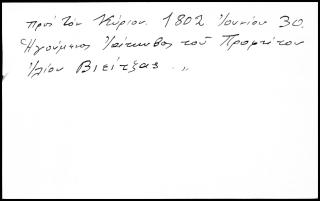 πρὸς τὸν Κύριον. 1802 Ἰουνίου 30.
Ἡγούμενος Ἰάκωβος τοῦ Προφήτου
Ἠλίου Βιέιτζας.,,